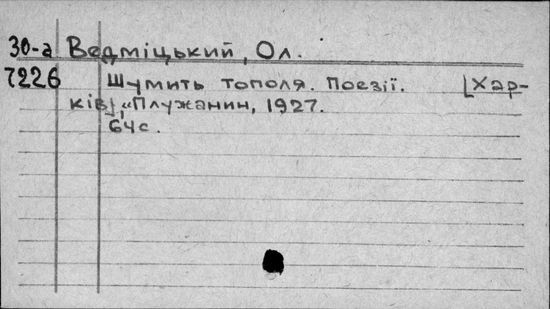 30-а Ведміцький, Ол.
7226 Шумить тополя. Поезії. [Хар-
ків], "Плужанин, 1927.
64с.